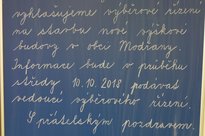 vyhlašujeme výběrové řízení
na stavbu nové výškové
budovy v obci Modřany.
Informace bude v průběhu
středy 10. 10. 2018 podávat
vedoucí výběrového řízení.
S přátelským pozdravem